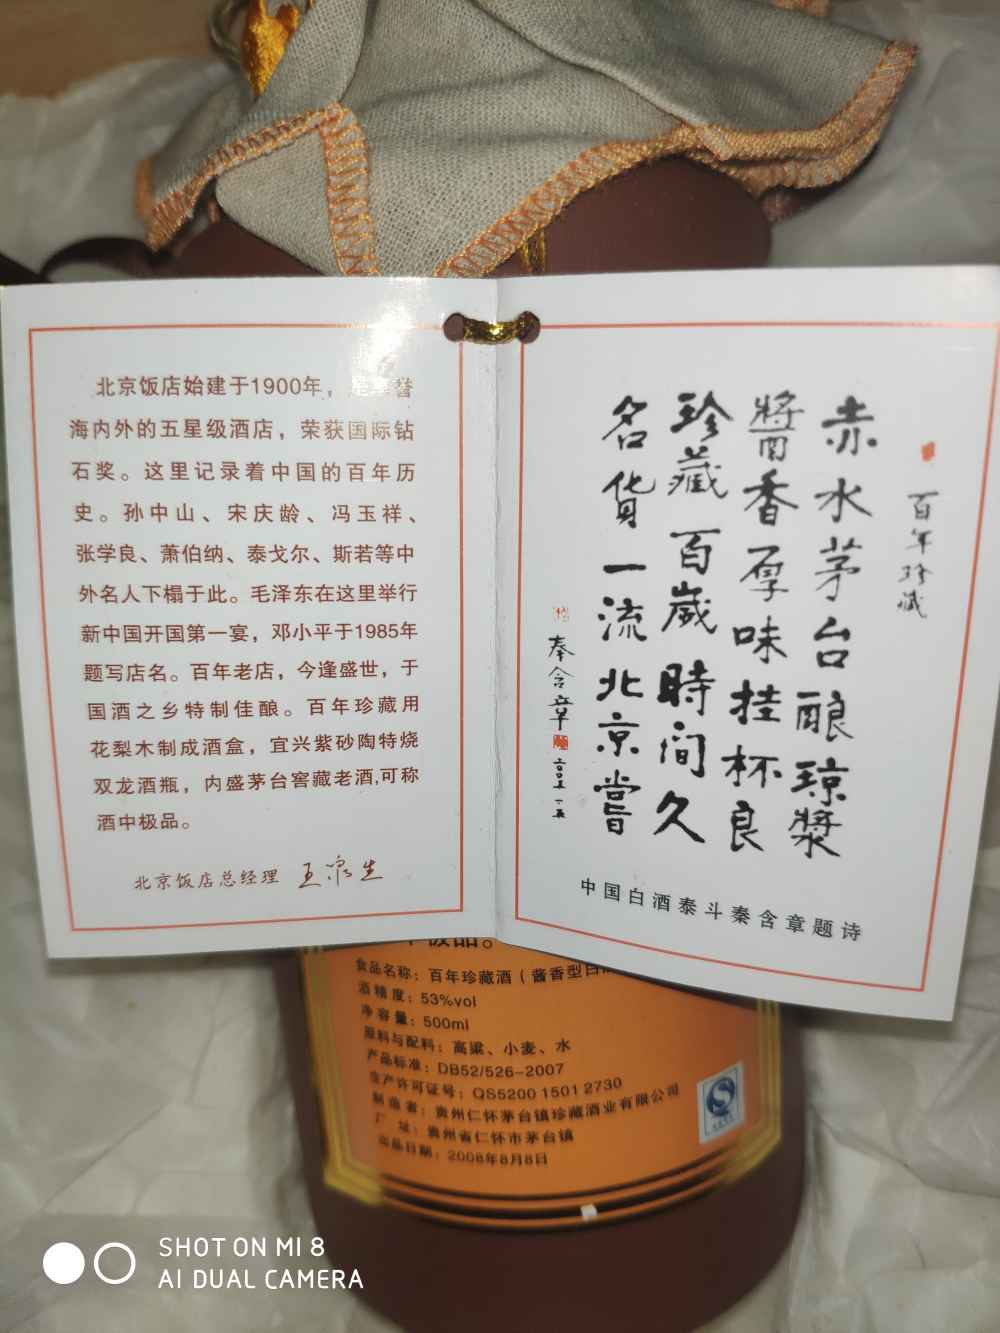 北京饭店始建于1900年，
海内外的五星级酒店，荣获国际钻
石奖。这里记录着中国的百年历
史。孙中山、宋庆龄、冯玉祥、
张学良、萧伯纳、泰戈尔、斯若等中
外名人下榻于此。毛泽东在这里举行
新中国开国第一宴，邓小平于1985年
题写店名。百年老店，今逢盛世，于
国酒之乡特制佳酿。百年珍藏用
花梨木制成酒盒，宜兴紫砂陶特烧
双龙酒瓶，内盛茅台窖藏老酒,可称
酒中极品。
北京饭店总经理
百年珍藏
赤水茅台酿琼漿
醬香厚味挂杯良
珍藏百歲時间久
名货一流北京嘗
秦含章
中国白酒泰斗秦含章题诗
极品。
食品名称：百年珍藏酒（酱香型白
酒精度：53%vol
净容量：500ml
原料与配料：高粱、小麦、水
产品标准：DB52/526-2007
生产许可证号：QS5200 1501 2730
制造者：贵州仁怀茅台镇珍藏酒业有限公司
厂址：贵州省仁怀市茅台镇
出品日期：2008年8月8日
SHOT ON MI 8
AI DUAL CAMERA